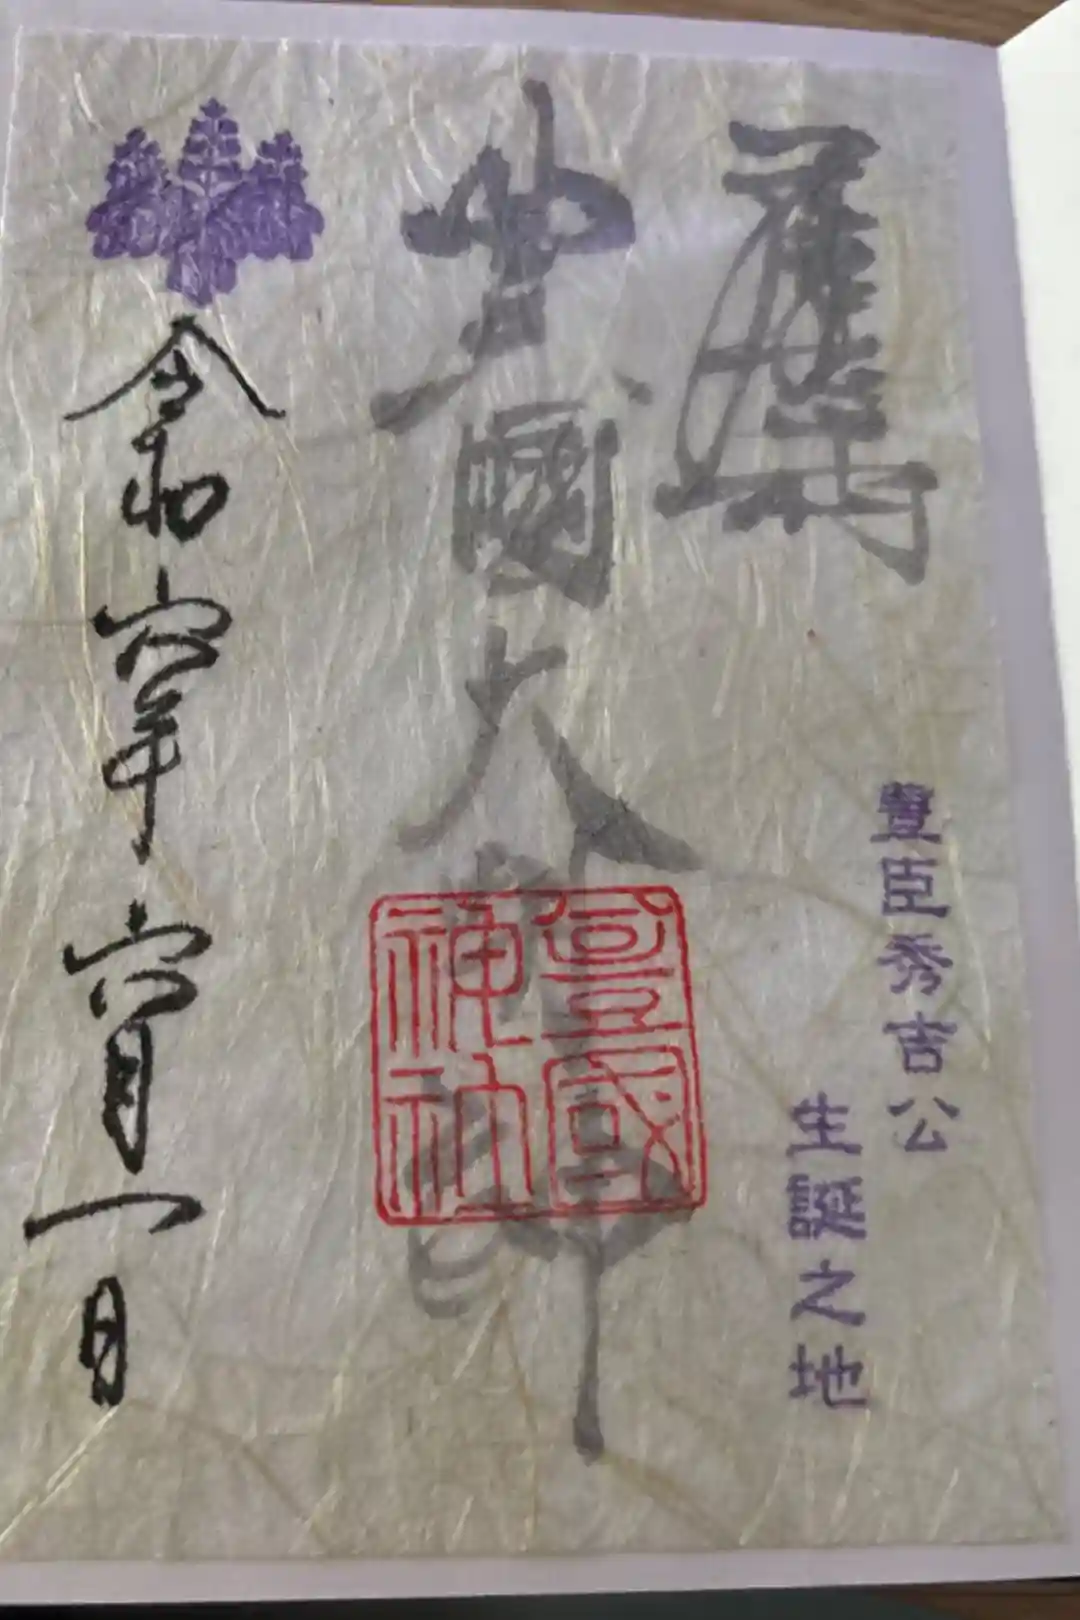 豐臣秀吉公
生誕之地
豊國大明神
豊國神社
令和六年六月一日